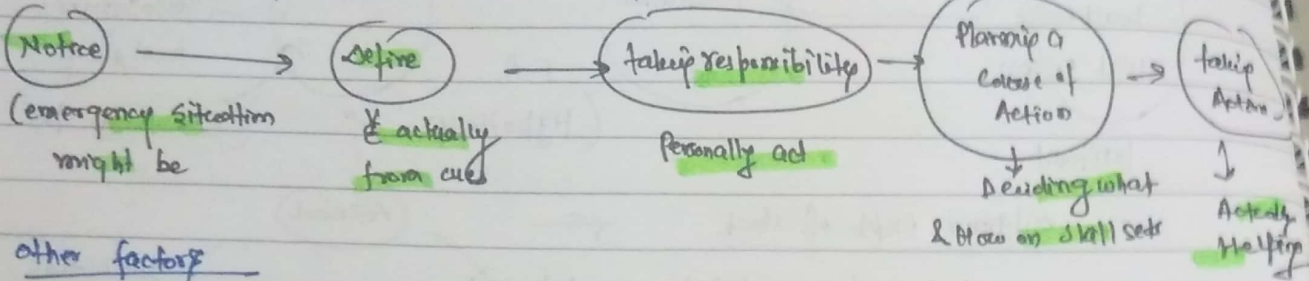 Notice → Define → taking responsibility → Planning a Course of Action → taking Action
(emergency situation might be
actually from cues
Personally act
Deciding what & How on skill sets
Actually Helping
other factors